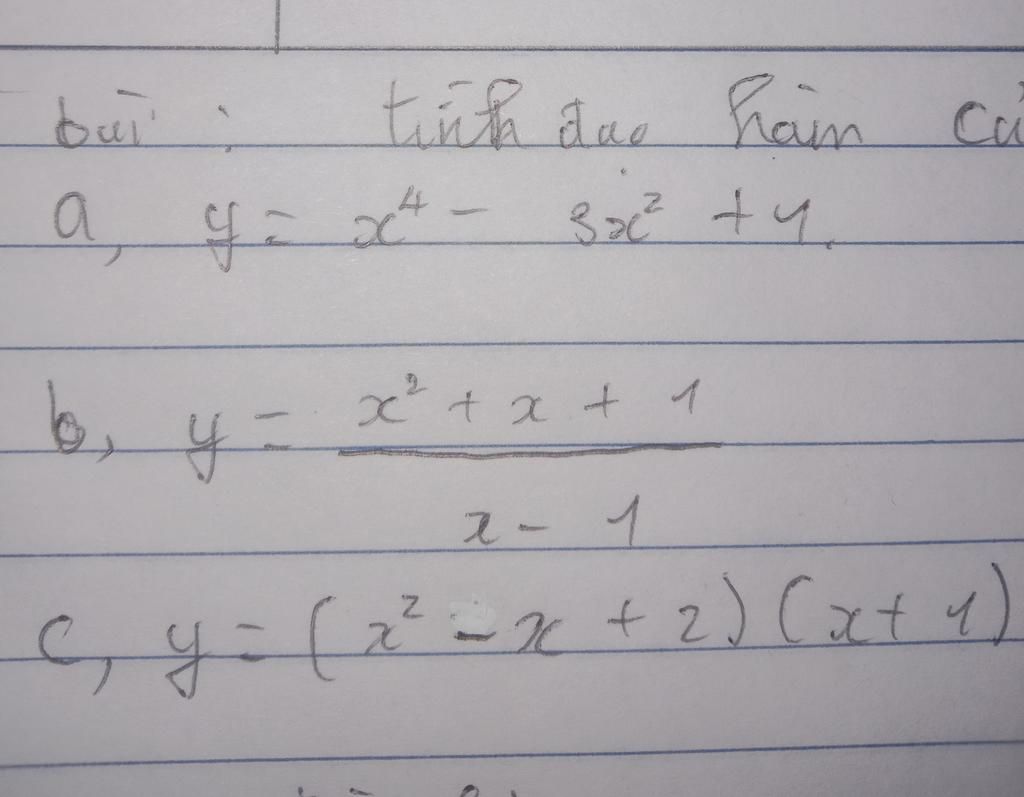 bài : tính đạo hàm củ
a, y = x⁴ - 3x² + 1.
b, y = x² + x + 1
x - 1
c, y = (x² - x + 2)(x + 1)